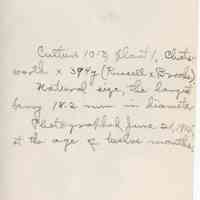 Culture 1013, plant 1, Chats-
worth x 394y (Russell x Brooks).
Natural size, the largest
berry 18.2 mm in diameter
Photographed June 21, 1915,
at the age of twelve months.